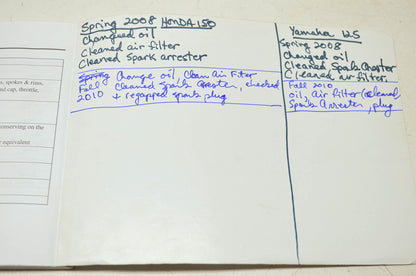 Spring 2008 HONDA 150
Changed oil
Cleaned air filter
Cleaned Spark arrester
Spring Change oil, Clean Air Filter
Fall Cleaned Spark Arrester, checked
2010 + regapped spark plug
Yamaha 125
Spring 2008
Changed oil
Cleaned Spark Arrester
Cleaned air filter.
Fall 2010
oil, Air filter (cleaned)
Spark Arrester, plug
s, spokes & rims,
nd cap, throttle,
onserving on the
r equivalent